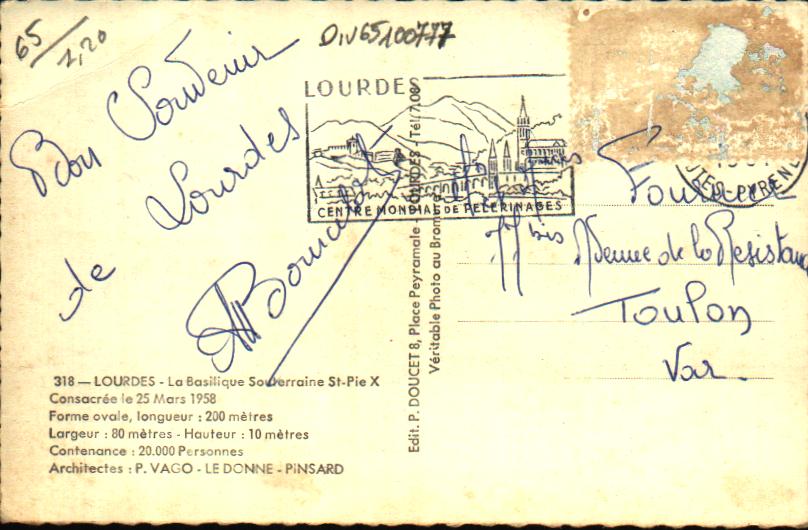 65/1,20
DIV65100777
LOURDES
CENTRE MONDIAL DE PELERINAGES
Bon Souvenir
de Lourdes
318 — LOURDES - La Basilique Souterraine St-Pie X
Consacrée le 25 Mars 1958
Forme ovale, longueur : 200 mètres
Largeur : 80 mètres - Hauteur : 10 mètres
Contenance : 20.000 Personnes
Architectes : P. VAGO - LE DONNE - PINSARD
Edit. P. DOUCET 8, Place Peyramale - LOURDES - Tél. 7.08
Véritable Photo au Bromure
bis Avenue de la Resistance
Toulon
Var.